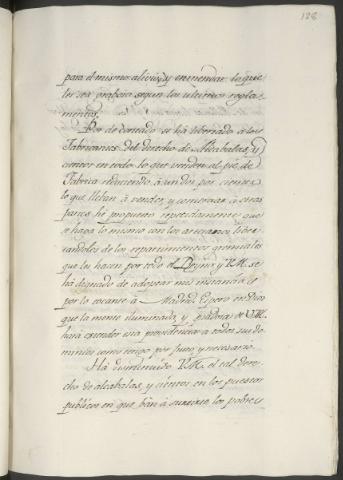 128
para el mismo alivio, y enmendar lo que
les sea gravoso segun los ultimos regla-
mentos.
Por de contado se há libertado á los
Fabricantes del derecho de Alcabalas, y
cientos en todo lo que venden al pié de
Fabrica reduciendo á un dos por ciento
lo que llevan á vender, y comerciar á otras
partes hé propuesto repetidamente que
se haga lo mismo con los artesanos liber-
tandoles de los repartimientos gremiales
que les hacen por todo el Reyno y V.M. se
há dignado de adoptar mis instancias
por lo tocante á Madrid. Espero en Dios
que la mente iluminada, y piadosa de V.M.
hará extender esta providencia á todos sus do-
minios como tengo por justo, y necesario.
Há disminuido V.M. el tal dere-
cho de alcabalas, y cientos en los puestos
publicos en que ban á surtirse los pobres